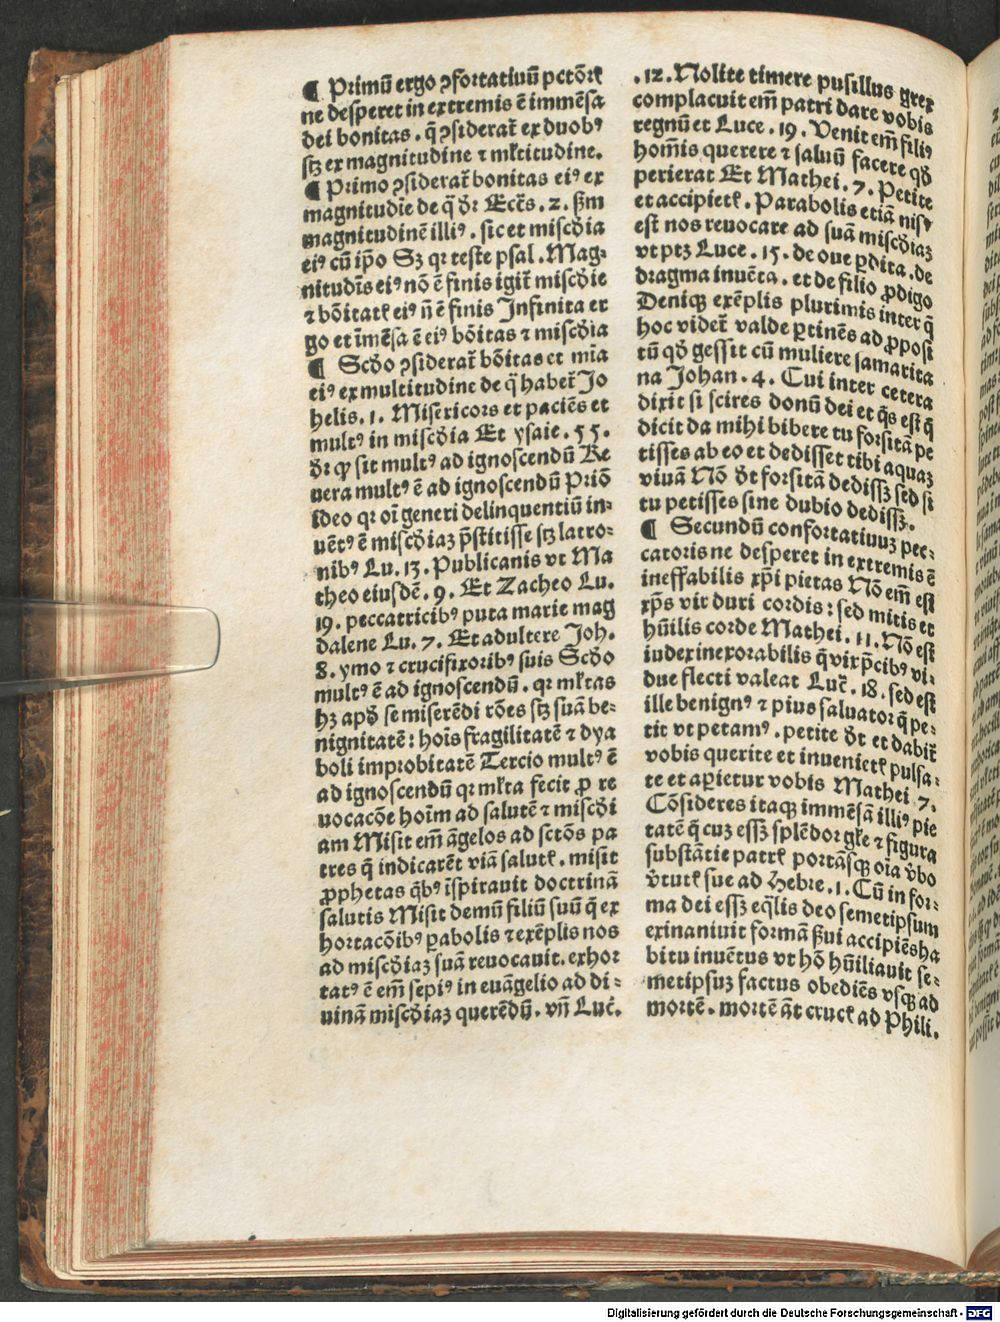 ¶ Primū ergo ꝯfortatiuū pctōrꝭ
ne desperet in extremis ē immēsa
dei bonitas. q̄ ꝯsiderat᷑ ex duobꝰ
sꝫ ex magnitudine ⁊ mꝉtitudine.
¶ Primo ꝯsiderat᷑ bonitas eiꝰ ex
magnitudīe de q̄ dr̄ Eccs̄. 2. ẜm
magnitudinē illiꝰ. sic et misc̄dia
eiꝰ cū ip̄o Sꝫ qꝛ teste psal. Mag-
nitudīs eiꝰ nō ē finis igit᷑ misc̄die
⁊ bōitatꝭ eiꝰ nō ē finis Infinita er
go et īmēsa ē eiꝰ bōitas ⁊ misc̄dia
¶ Scd̄o ꝯsiderat᷑ bōitas et mīa
eiꝰ ex multitudine de q̄ habet᷑ Jo
helis. 1. Misericors et paciēs et
multꝰ in misc̄dia Et ysaie. 55.
dr̄ ꝙ sit multꝰ ad ignoscendū Re
uera multꝰ ē ad ignoscendū Priō
ideo qꝛ oī generi delinquentiū in-
uētꝰ ē misc̄diaꝫ p̄stitisse sꝫ latro-
nibꝰ Lu. 13. Publicanis vt Ma
theo eiusdē. 9. Et Zacheo Lu.
19. peccatricibꝰ puta marie mag
dalene Lu. 7. Et adultere Joh.
8. ymo ⁊ crucifixoribꝰ suis Scd̄o
multꝰ ē ad ignoscendū. qꝛ mꝉtas
hꝫ apd̄ se miserēdi rōes sꝫ suā be-
nignitatē: hoīs fragilitatē ⁊ dya
boli improbitatē Tercio multꝰ ē
ad ignoscendū qꝛ mꝉta fecit ꝓ re
uocacōe hoīm ad salutē ⁊ misc̄di
am Misit em̄ āgelos ad sctōs pa
tres q̄ indicarēt viā salutꝭ. misit
ꝓphetas qͥbꝰ īspirauit doctrinā
salutis Misit demū filiū suū q̄ ex
hortacōibꝰ ꝑabolis ⁊ exēplis nos
ad misc̄diaꝫ suā reuocauit. exhor
tatꝰ ē em̄ sepiꝰ in euāgelio ad di-
uinā misc̄diaꝫ querēdū. vn̄ Luc̄.
.12. Nolite timere pusillus grex
complacuit em̄ patri dare vobis
regnū et Luce. 19. Venit em̄ filiꝰ
hoīs querere ⁊ saluū facere qd̄
perierat Et Mathei. 7. Petite
et accipietꝭ. Parabolis etiā nisꝰ
est nos reuocare ad suā misc̄diaꝫ
vt ptꝫ Luce. 15. de oue ꝑdita. de
dragma inuēta. et de filio ꝓdigo
Deniqꝫ exēplis plurimis inter q̄
hoc videt᷑ valde ꝑtinēs ad ꝓposi
tū qd̄ gessit cū muliere samarita
na Johan. 4. Cui inter cetera
dixit si scires donū dei et qͥs est q̄
dicit da mihi bibere tu forsitā pe
tisses ab eo et dedisset tibi aquaꝫ
viuā Nō dt̄ forsitā dedissꝫ sed si
tu petisses sine dubio dedissꝫ.
¶ Secundū confortatiuuꝫ pec-
catoris ne desperet in extremis ē
ineffabilis xp̄i pietas Nō em̄ est
xp̄s vir duri cordis: sed mitis et
hūilis corde Mathei. 11. Nō est
iudex inexorabilis q̄ vix p̄cibꝰ vi-
due flecti valeat Luc̄. 18. sed est
ille benignꝰ ⁊ pius saluator q̄ pe-
tit vt petamꝰ. petite dt̄ et dabit᷑
vobis querite et inuenietꝭ pulsa-
te et aꝑietur vobis Mathei 7.
Cōsideres itaqꝫ immēsā illiꝰ pie
tatē q̄ cuꝫ essꝫ splēdor gꝉe ⁊ figura
substātie patrꝭ portāsqꝫ oīa v̄bo
v̄tutꝭ sue ad Hebre. 1. Cū in for-
ma dei essꝫ eq̄lis deo semetipsum
exinaniuit formā ẜui accipiēs ha
bitu inuētus vt hō hūiliauit se-
metipsuꝫ factus obediēs vsqꝫ ad
mortē. mortē āt crucꝭ ad Phili.
Digitalisierung gefördert durch die Deutsche Forschungsgemeinschaft - DFG